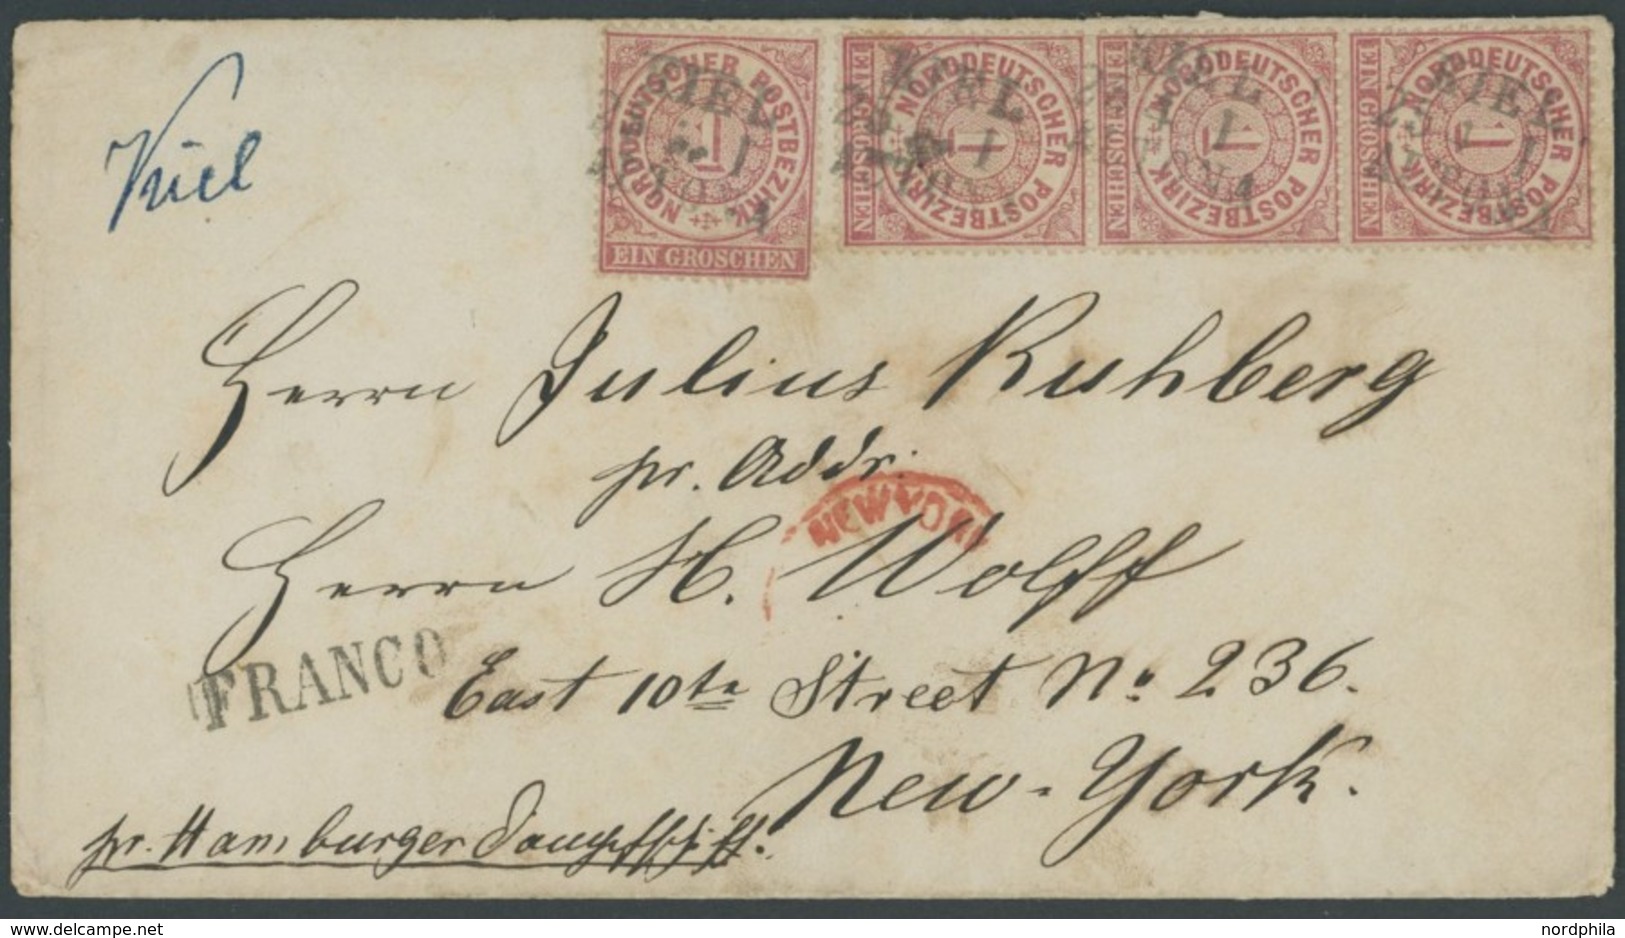 Kiel
NORDDEUTSCHER POSTBEZIRK
1
EIN GROSCHEN
NORDDEUTSCHER POSTBEZIRK
1
EIN GROSCHEN
NORDDEUTSCHER POSTBEZIRK
1
EIN GROSCHEN
NORDDEUTSCHER POSTBEZIRK
1
EIN GROSCHEN
KIEL
KIEL
KIEL
KIEL
Herrn Julius Ruhberg
pr. Addr.
NEW YORK
Herrn H. Wolff
FRANCO
East 10te Street No. 236.
New-York.
pr. Hamburger Dampfschiff.
www.ansichtskarten-center.de
nordphila